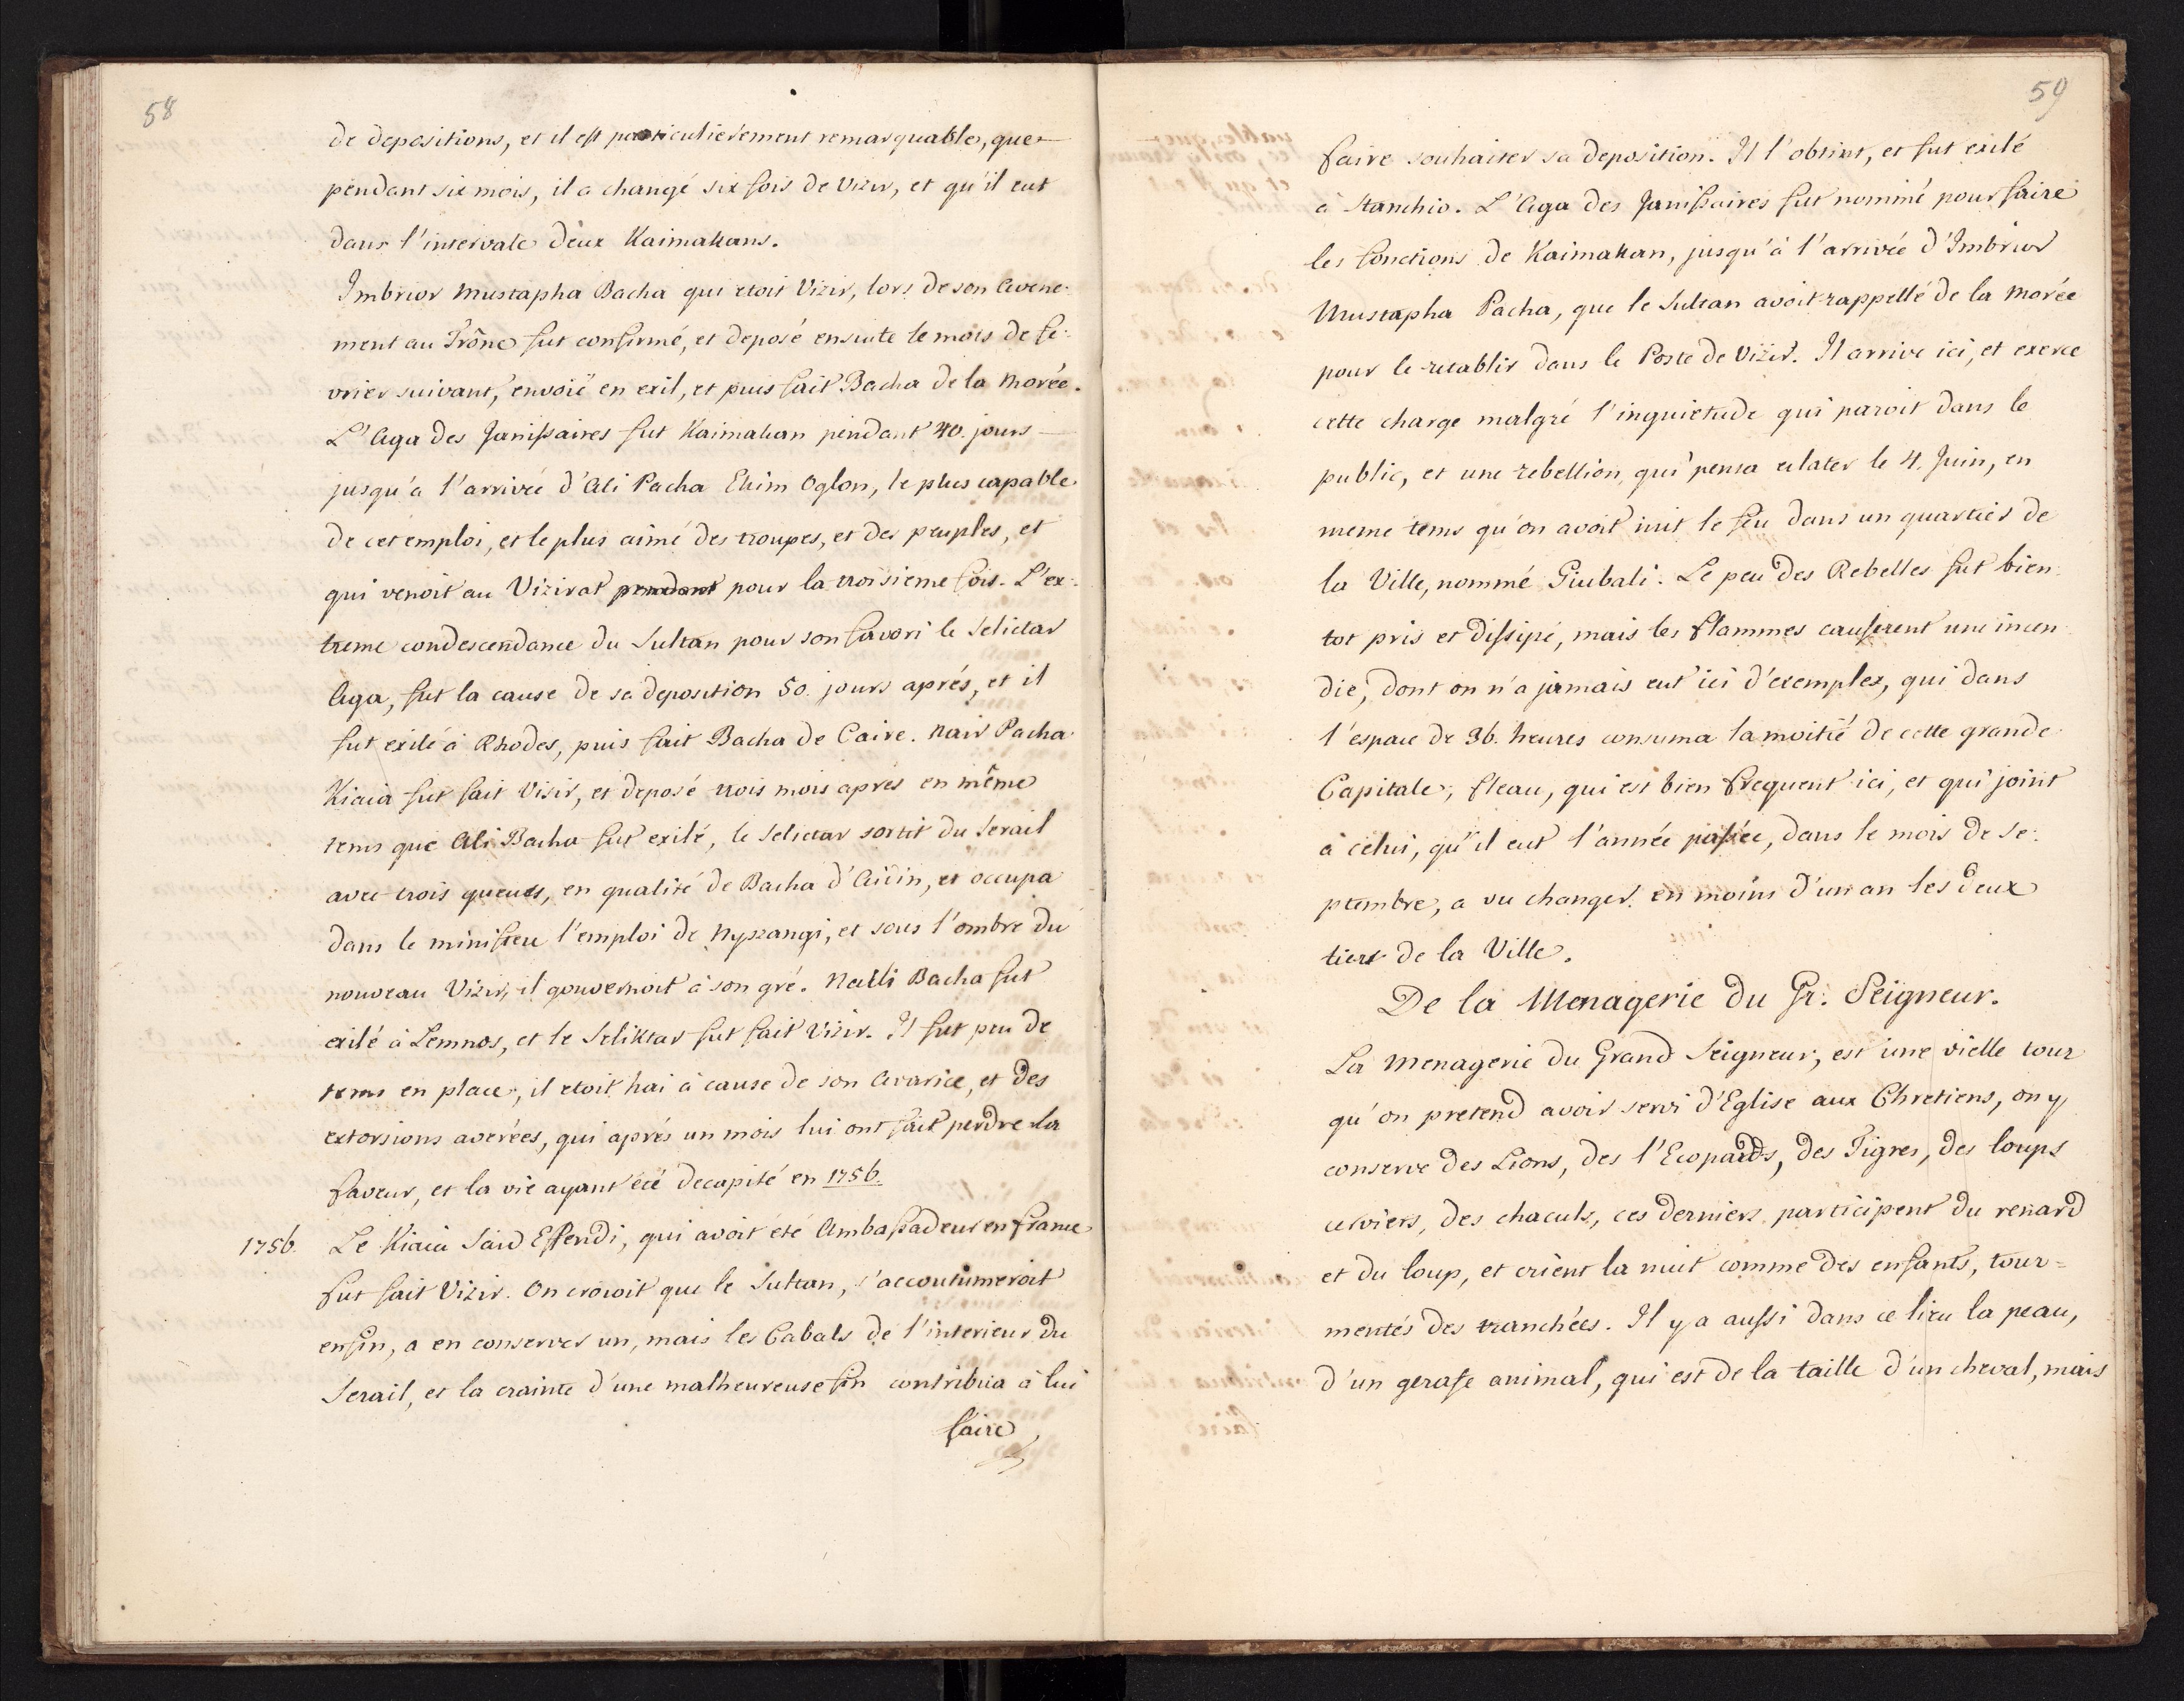 58
de depositions, et il est particulierement remarquable, que
pendant six mois, il a changé six fois de Vizir, et qu'il eut
dans l'intervale deux Kaimakans.
Imbrior Mustapha Bacha qui etoit Vizir, lors de son Avene-
ment au Trône fut confirmé, et deposé ensuite le mois de fe-
vrier suivant, envoïé en exil, et puis fait Bacha de la Morée.
L'Aga des Janissaires fut Kaimakan pendant 40. jours
jusqu'a l'arrivée d'Ali Pacha Ekim Oglon, le plus capable
de cet emploi, et le plus aimé des troupes, et des peuples, et
qui venoit au Vizirat pendant pour la troisieme fois. L'ex-
treme condescendance du Sultan pour son favori le Selictar
Aga, fut la cause de sa deposition 50. jours aprés, et il
fut exilé à Rhodes, puis fait Bacha de Caire. Nair Pacha
Kiaia fut fait Visir, et deposé trois mois aprés en même
tems que Ali Bacha fut exilé, le Selictar sortit du Serail
avec trois queues, en qualité de Bacha d'Aidin, et occupa
dans le ministeu l'emploi de Nyszangi, et sous l'ombre du
nouveau Vizir, il gouvernoit à son gré. Naili Bacha fut
exilé à Lemnos, et le Seliktar fut fait Vizir. Il fut peu de
tems en place, il etoit hai à cause de son Avarice, et des
extorsions averées, qui aprés un mois lui ont fait perdre la
faveur, et la vie ayant été decapité en 1756.
1756. Le Kiaia Said Effendi, qui avoit été Ambassadeur en France
fut fait Vizir. On croioit que le Sultan, s'accoutumeroit
enfin, a en conserver un, mais les Cabals de l'interieur du
Serail, et la crainte d'une malheureuse fin contribua à lui
faire
59
faire souhaiter sa deposition. Il l'obtint, et fut exilé
à Stanchio. L'Aga des Janissaires fut nommé pour faire
les fonctions de Kaimakan, jusqu'à l'arrivée d'Imbrior
Mustapha Pacha, que le Sultan avoit rappellé de la Morée
pour le retablir dans le Poste de Vizir. Il arrive ici, et exerce
cette charge malgré l'inquietude qui paroit dans le
public, et une rebellion, qui pensa eclater le 4. Juin, en
meme tems qu'on avoit mit le feu dans un quartier de
la Ville, nommé Giubali. Le peu des Rebelles fut bien-
tot pris et dissipé, mais les flammes causerent une incen-
die, dont on n'a jamais eut ici d'exemples, qui dans
l'espace de 36. heures consuma la moitié de cette grande
Capitale, fleau, qui est bien frequent ici, et qui joint
à celui, qu'il eut l'année passée, dans le mois de Se-
ptembre, a vu changer en moins d'un an les deux
tiers de la Ville.
De la Menagerie du Gr. Seigneur.
La Menagerie du Grand Seigneur, est une vielle tour
qu'on pretend avoir servi d'Eglise aux Chretiens, on y
conserve des Lions, des l'Eopards, des Tigres, des loups
cerviers, des chaculs, ces derniers participent du renard
et du loup, et crient la nuit comme des enfants, tour=
mentés des tranchées. Il y a aussi dans ce lieu la peau,
d'un gerafe animal, qui est de la taille d'un cheval, mais